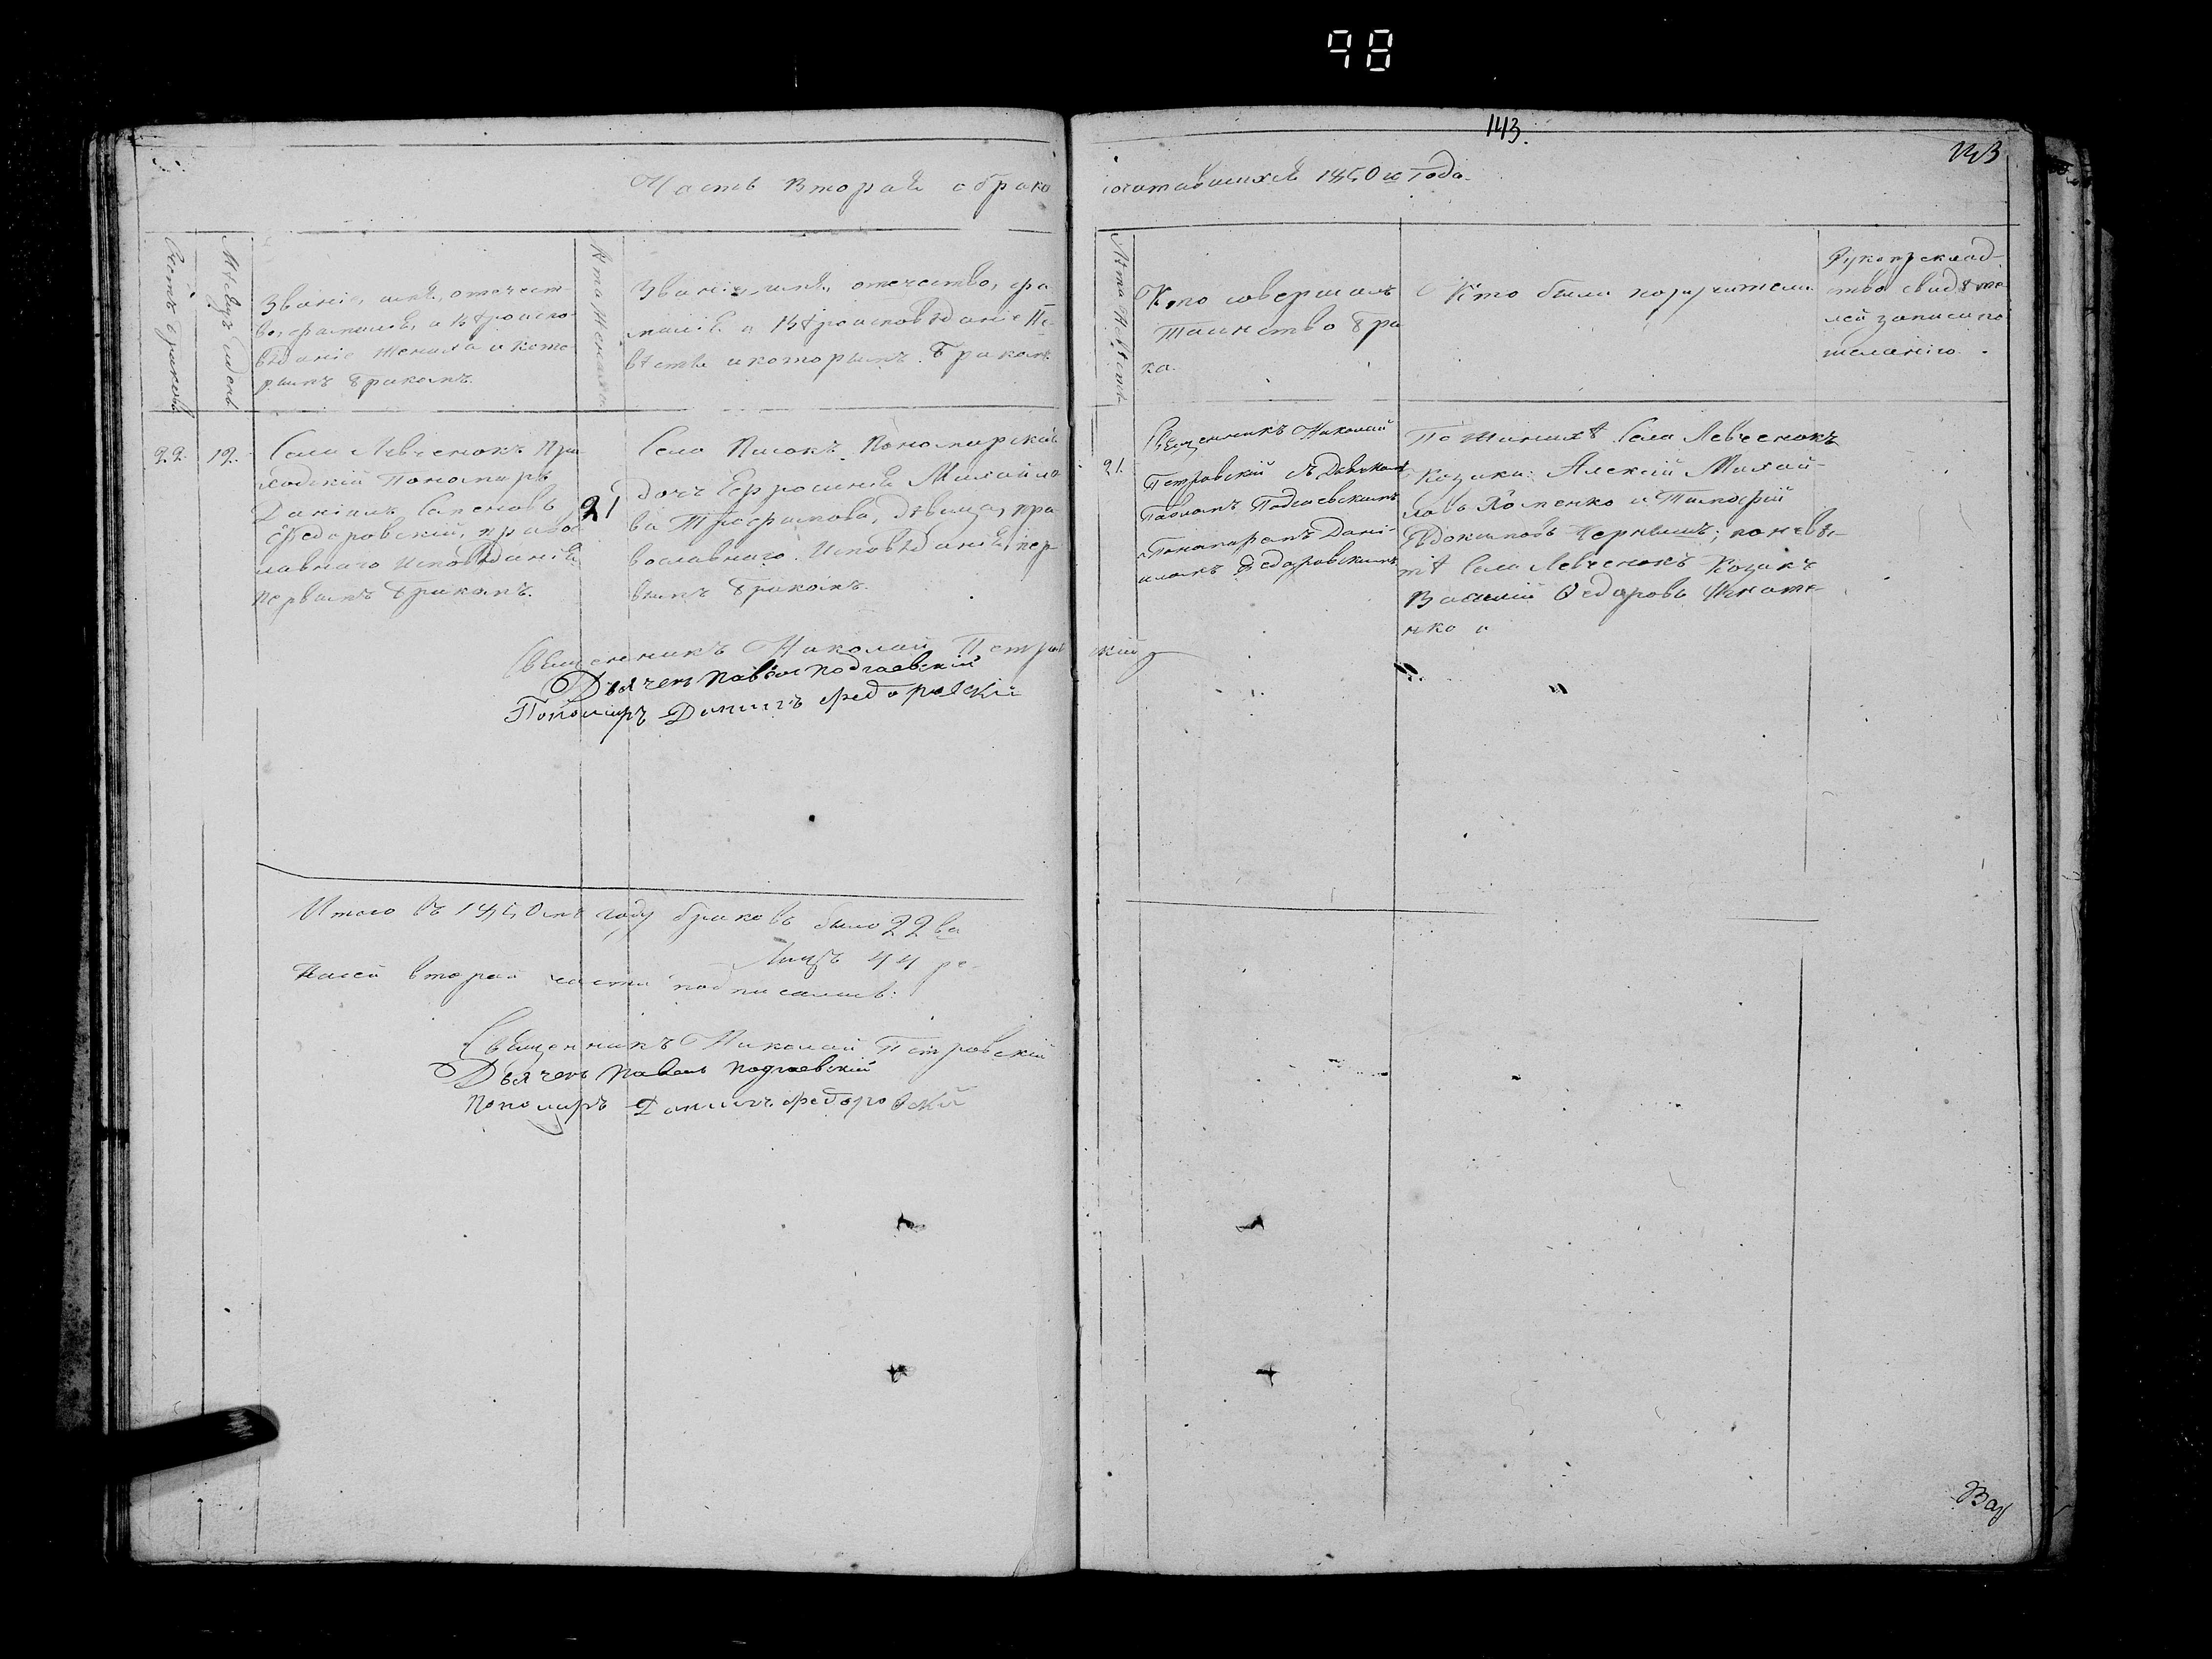 98
143.
143
Часть Вторая о брако
сочетавшихся 1850го Года.
Счетъ браковъ
Мѣсяцъ и день
Званіе, имя, отечест-
во, фамилія, и Вѣроиспо-
вѣданіе Жениха и кото
рымъ бракомъ.
Лѣта Жениха
Званіе, имя, отечество, фа
милія и Вѣроисповѣданіе Не-
вѣсты и которымъ Бракомъ
Лѣта Невѣсты
Кто совершалъ
Таинство Бра
ка.
Кто были поручители
Рукоприклад-
ство свидѣте
лей записи по
желанію.
22. 12.
Села Левченокъ При
ходскій Пономарь
Даніилъ Семеновъ
Федоровскій, право
славнаго Исповѣданія
первымъ бракомъ.
21
Села Писокъ Пономарская
дочь Ефросинія Михайло
ва Трофимова, дѣвица, пра
вославнаго Исповѣданія, пер
вымъ бракомъ.
21.
Священникъ Николай
Петровскій съ Дьячкомъ
Павломъ Подгаевскимъ
и Пономаремъ Дані-
иломъ Федоровскимъ
По Женихѣ Села Левченокъ
Козаки: Алексій Михай-
ловъ Хоменко и Тимофій
Евдокимовъ Чернышъ; по невѣс-
тѣ Села Левченокъ Козакъ
Василій Федоровъ Игнате-
нко и
Священникъ Николай Петров
скій
Дьячекъ Павелъ Подгаевскій
Пономарь Данилъ Федоровскій
Итого въ 1850мъ году браковъ было 22ва
Лицъ 44ре.
Къ сей второй части подписались:
Священникъ Николай Петровскій
Дьячекъ Павелъ Подгаевскій
Пономарь Данилъ Федоровскій